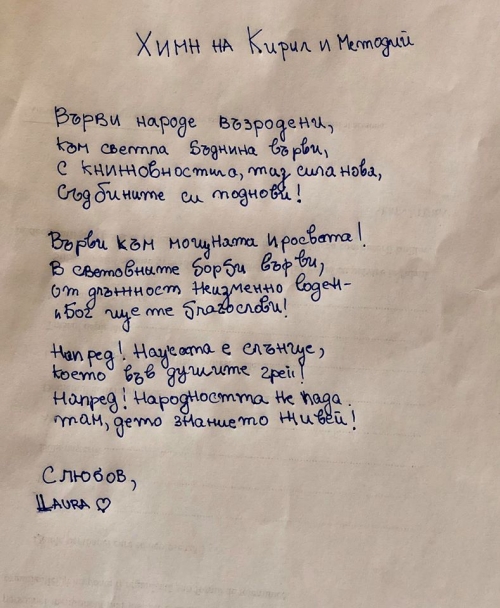 Химн на Кирил и Методий
Върви народе възродени,
към светла бъднина върви,
с книжовността, таз сила нова,
съдбините си поднови!
Върви към мощната просвета!
В световните борби върви,
от длъжност неизменно воден-
и Бог ще те благослови!
Напред! Науката е слънце,
което във душите грей!
Напред! Народността не пада
там, дето знанието живей!
С любов,
Laura ♡